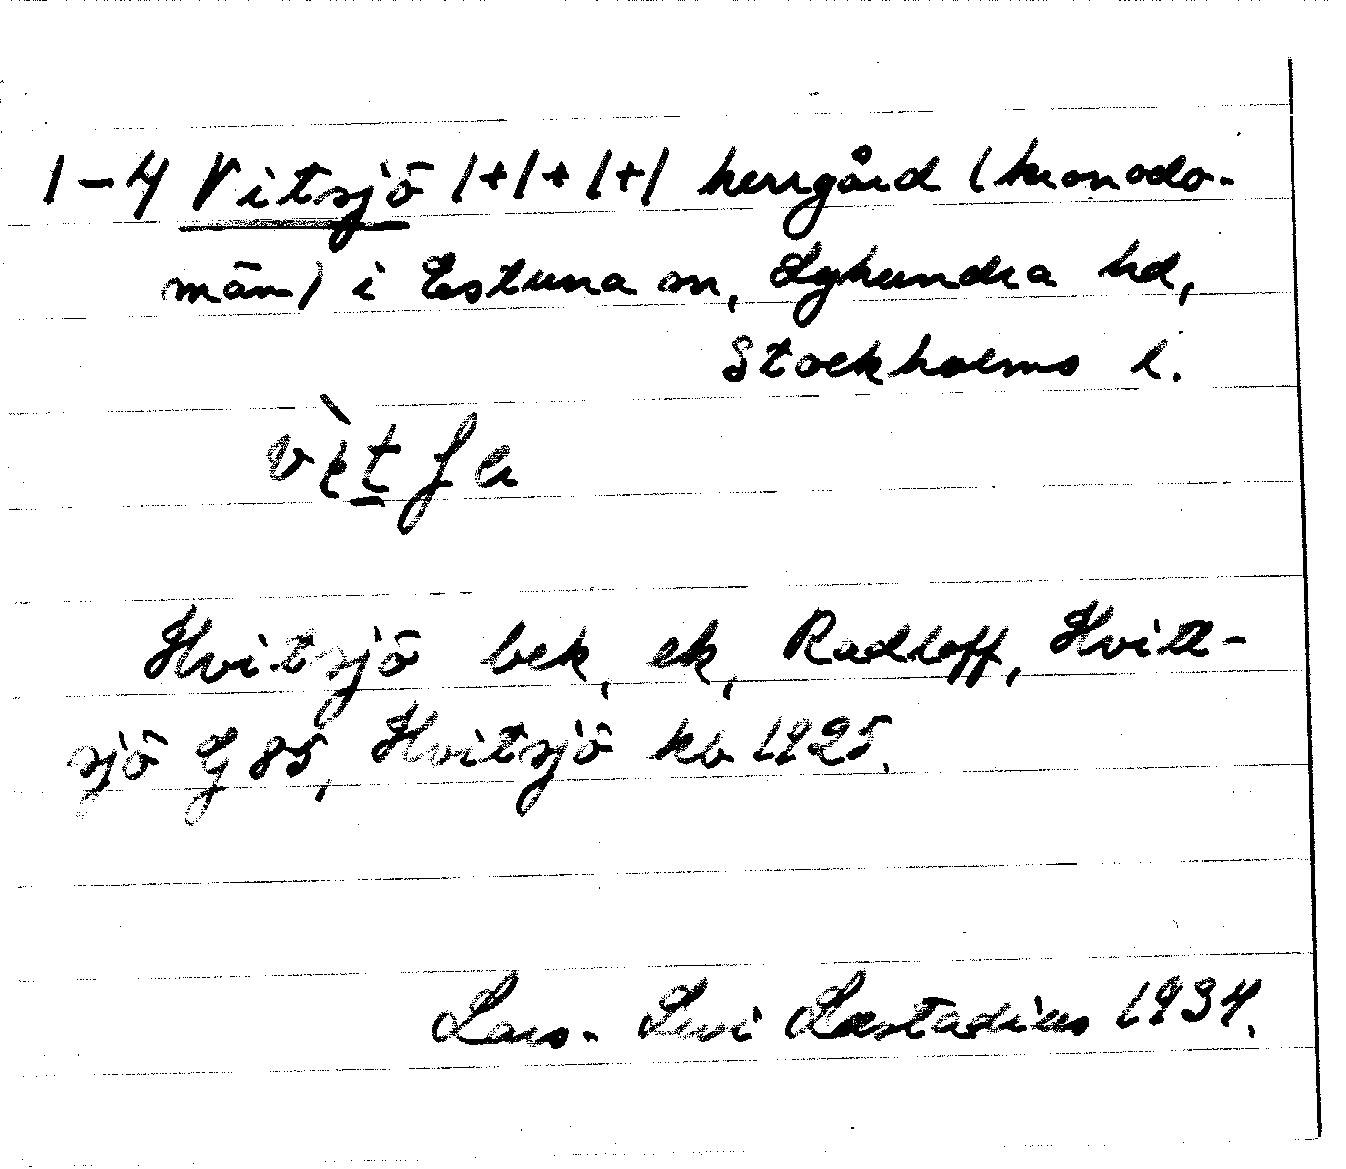 1-4 Vitsjö 1+1+1+1 herrgård (kronodo-
män) i Estuna sn, Lyhundra hd,
Stockholms l.
Hvitsjö bek, ek, Radloff, Hvitt-
sjö G 85, Hvitsjö kb 1925.
Lars-Levi Læstadius 1934.